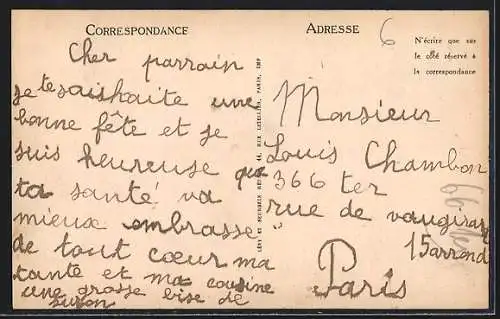 CORRESPONDANCE
Cher parrain
je te saishaite une
bonne fête et je
suis heureuse que
ta santé va
mieux embrasse
de tout cœur ma
tante et ma cousine
une grosse bise de
suzon
ADRESSE
6
N'écrire que sur
le côté réservé à
la correspondance
Monsieur
Louis Chambon
366 ter
rue de vaugirard
15 arrond
Paris